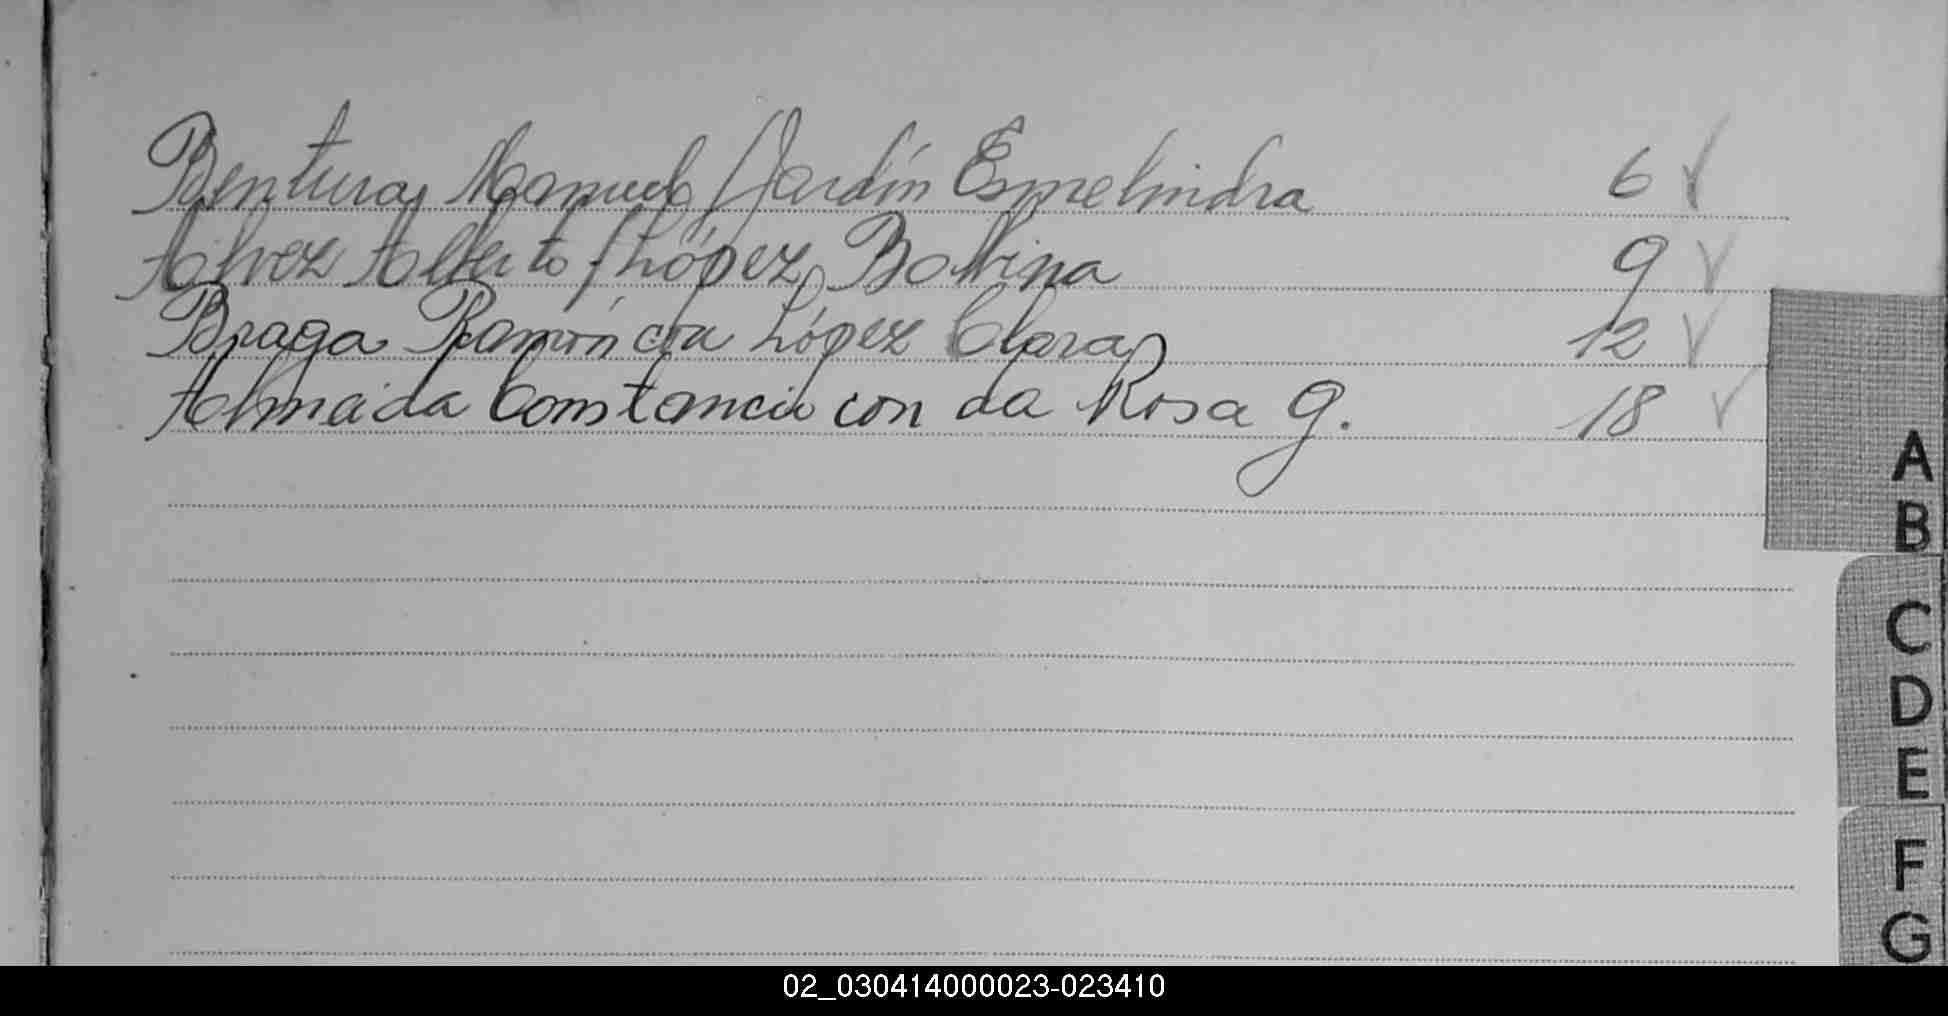 Bentura Manuel / Jardín Esmelindra 6 ✓
Alvez Alberto / López Balvina 9 ✓
Braga Ramón con López Clara 12 ✓
Almaida Constancio con da Rosa G. 18 ✓
A
B
C
D
E
F
G
02_030414000023-023410